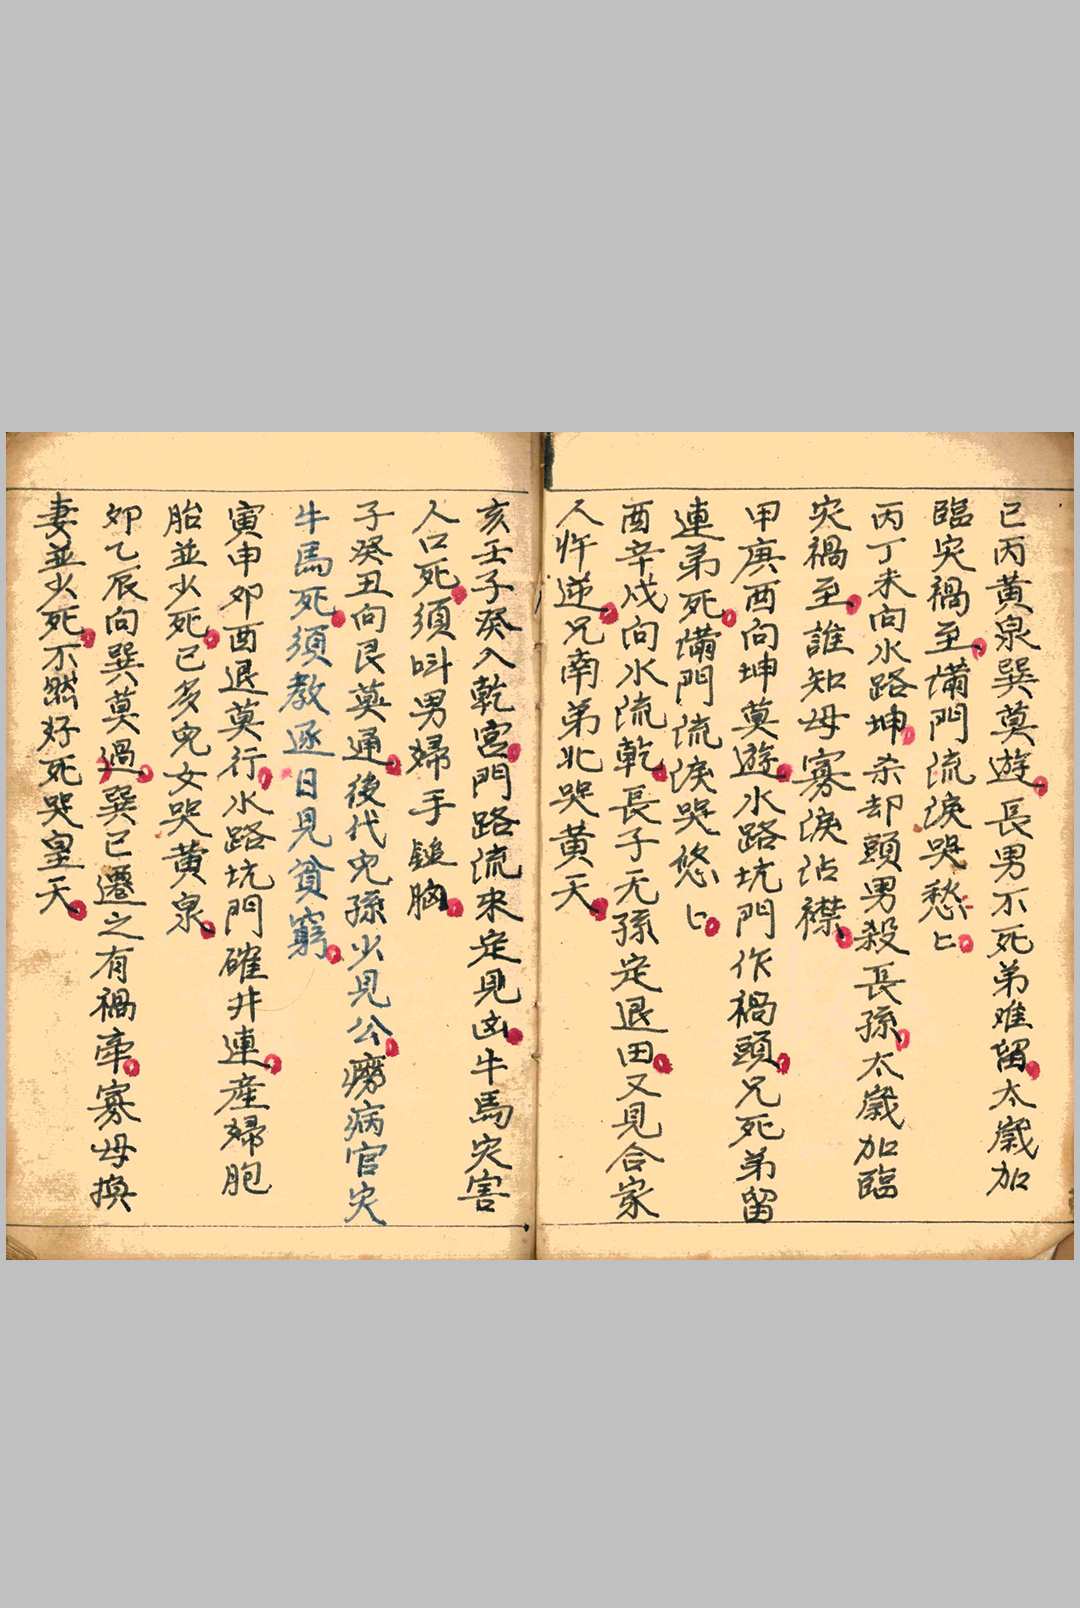 已丙黄泉巽莫遊長男不死弟难留太歲加
臨灾禍至滿門流淚哭愁匕
丙丁未向水路坤杀却頭男殺長孫太歲加臨
灾禍至誰知母寡淚沾襟
甲庚酉向坤莫遊水路坑門作禍頭兄死弟留
連弟死滿門流淚哭悠匕
酉辛戍向水流乾長子无孫定退田又見合家
人忤逆兄南弟北哭黄天
亥壬子癸入乾宮門路流來定見凶牛馬灾害
人口死須呌男婦手鎚胸
子癸丑向艮莫通後代児孫少見公癆病官灾
牛馬死須教逐日見貧窮
寅申夘酉退莫行水路坑門確井連産婦胞
胎並少死已多児女哭黄泉
夘乙辰向巽莫過巽已遷之有禍牽寡母換
妻並少死不然好死哭皇天